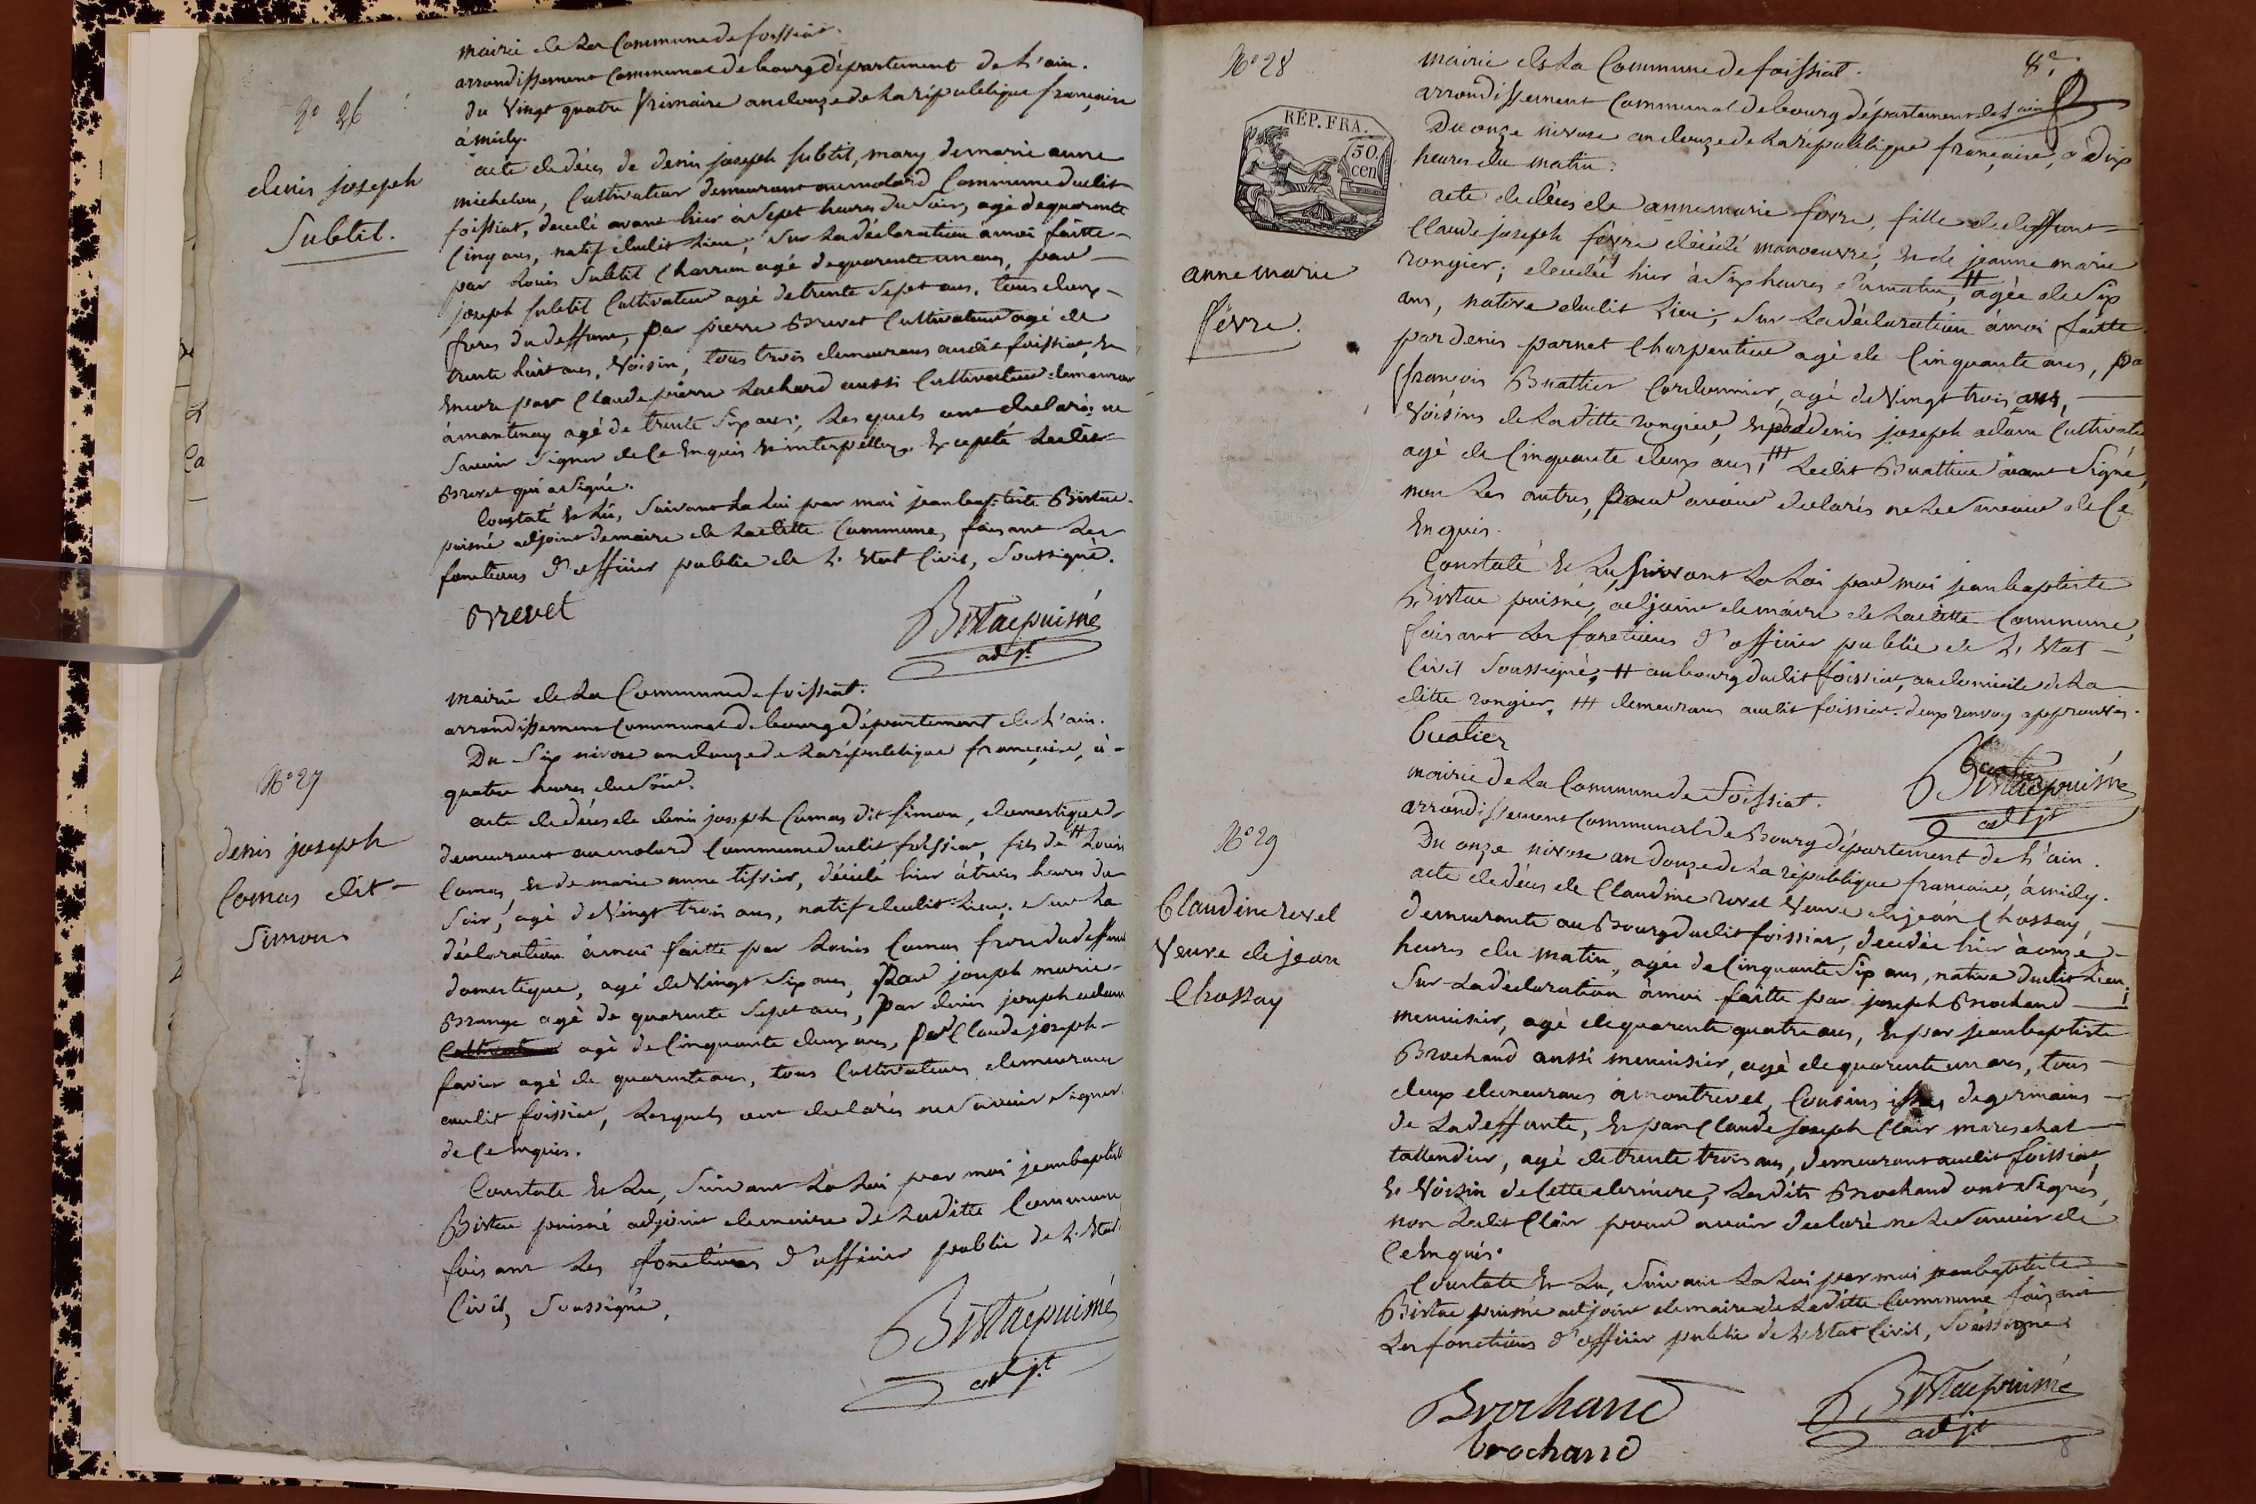 mairie de La Commune de foissiat.
arrondissement Communal de bourg département de L'ain.
du Vingt quatre frimaire an douze de La république française
à midy.
N° 26
denis joseph
Subtil.
acte de décès de denis joseph subtil, mary de marie anne
michelon, Cultivateur demeurant au molard Commune dudit
foissiat, décédé avant hier à Sept heures du Soir, agé de quarante
Cinq ans, natif dudit Lieu; Sur La déclaration à moi faitte
par Louis Subtil Charron agé de quarante un ans, par
joseph subtil Cultivateur agé de trente Sept ans, tous deux
freres du deffunt, par pierre Brevet Cultivateur agé de
trente huit ans, Voisin, tous trois demeurans audit foissiat, Et
Encore par Claude pierre Lachard aussi Cultivateur demeurant
à mantenay agé de trente Six ans; Lesquels ont declarés ne
Savoir Signer de Ce Enquis Et interpellez, Excepté Ledit
Brevet qui a Signé.
Constaté Et Lû, Suivant La Loi par moi jean baptiste Bistac
puisné adjoint de maire de Laditte Commune, faisant Les
fonctions d'officier public de L'Etat Civil, Soussigné.
Brevet
Bistac puisné
adjt.
mairie de La Commune de foissiat.
arrondissement Communal de bourg département de L'ain.
Du Six nivose an douze de La république française, à
quatre heures du Soir.
N° 27
denis joseph
Comas dit
Simon
acte de décès de denis joseph Comas dit Simon, domestique
demeurant au molard Commune dudit foissiat, fils de # Louis
Comas, Et de marie anne tissier, décédé hier à trois heures du
Soir, agé de Vingt trois ans, natif dudit Lieu; Sur La
déclaration à moi faitte par Louis Comas frere du deffunt
domestique, agé de Vingt Six ans, Par joseph marie
Brange agé de quarante Sept ans, Par denis joseph adam
Cultivateur agé de Cinquante deux ans, par Claude joseph
favier agé de quarante ans, tous Cultivateurs demeurans
audit foissiat, Lesquels ont declarés ne Savoir Signer
de Ce Enquis.
Constaté Et Lu, Suivant La Loi par moi jean baptiste
Bistac puisné adjoint de maire de Laditte Commune
faisant Les fonctions d'officier public de L'Etat
Civil, Soussigné.
Bistac puisné
adjt.
N° 28
8e.
mairie de La Commune de foissiat.
arrondissement Communal de bourg département de L'ain
Du onze nivose an douze de La république française, à dix
heures du matin:
RÉP. FRA.
50.
cen
anne marie
févre.
acte de décès de anne marie févre, fille de deffunt
Claude joseph févre décédé manoeuvre, Et de jeanne marie
rongier; décédée hier à Six heures du matin, # agée de Six
ans, native dudit Lieu; Sur La déclaration à moi faitte
par denis parnet Charpentier agé de Cinquante ans, par
françois Buattier Cordonnier, agé de Vingt trois ans,
Voisins de Laditte rongier, Et par denis joseph adam Cultivateur
agé de Cinquante deux ans, ## Ledit Buattier ayant Signé,
non Les autres, Pour avoir declarés ne Le Savoir de Ce
Enquis.
Constaté Et Lu, Suivant La Loi par moi jean baptiste
Bistac puisné, adjoint de maire de Laditte Commune,
faisant Les fonctions d'officier public de L'Etat
Civil Soussigné, # au bourg dudit foissiat, au domicile de La
ditte rongier, ## demeurans audit foissiat. deux renvoy approuvés.
buatier
Bistac puisné
adjt
mairie de La Commune de Foissiat.
arrondissement Communal de Bourg département de L'ain.
Du onze nivose an douze de La république francaise, à midy.
N° 29
Claudine revel
Veuve de jean
Chossay
acte de décès de Claudine revel Veuve de jean Chossay,
demeurante au Bourg dudit foissiat, decedée hier à onze
heures du matin, agée de Cinquante Six ans, native dudit Lieu;
Sur La déclaration à moi faitte par joseph Brochand
menuisier, agé de quarante quatre ans, Et par jean baptiste
Brochand aussi menuisier, agé de quarante un ans, tous
deux demeurans à montrevel, Cousins issus de germains
de La deffunte, Et par Claude joseph Clair mareschal
taillendier, agé de trente trois ans, demeurant audit foissiat,
Et Voisin de Cette derniere, Lesdits Brochand ont Signés,
non Ledit Clair pour avoir declaré ne Le Savoir de
Ce Enquis.
Constaté Et Lu, Suivant La Loi par moi jean baptiste
Bistac puisné adjoint de maire de Laditte Commune faisant
Les fonctions d'officier public de L'Etat Civil, Soussigné
Brochand
brochand
Bistac puisné
adjt
8